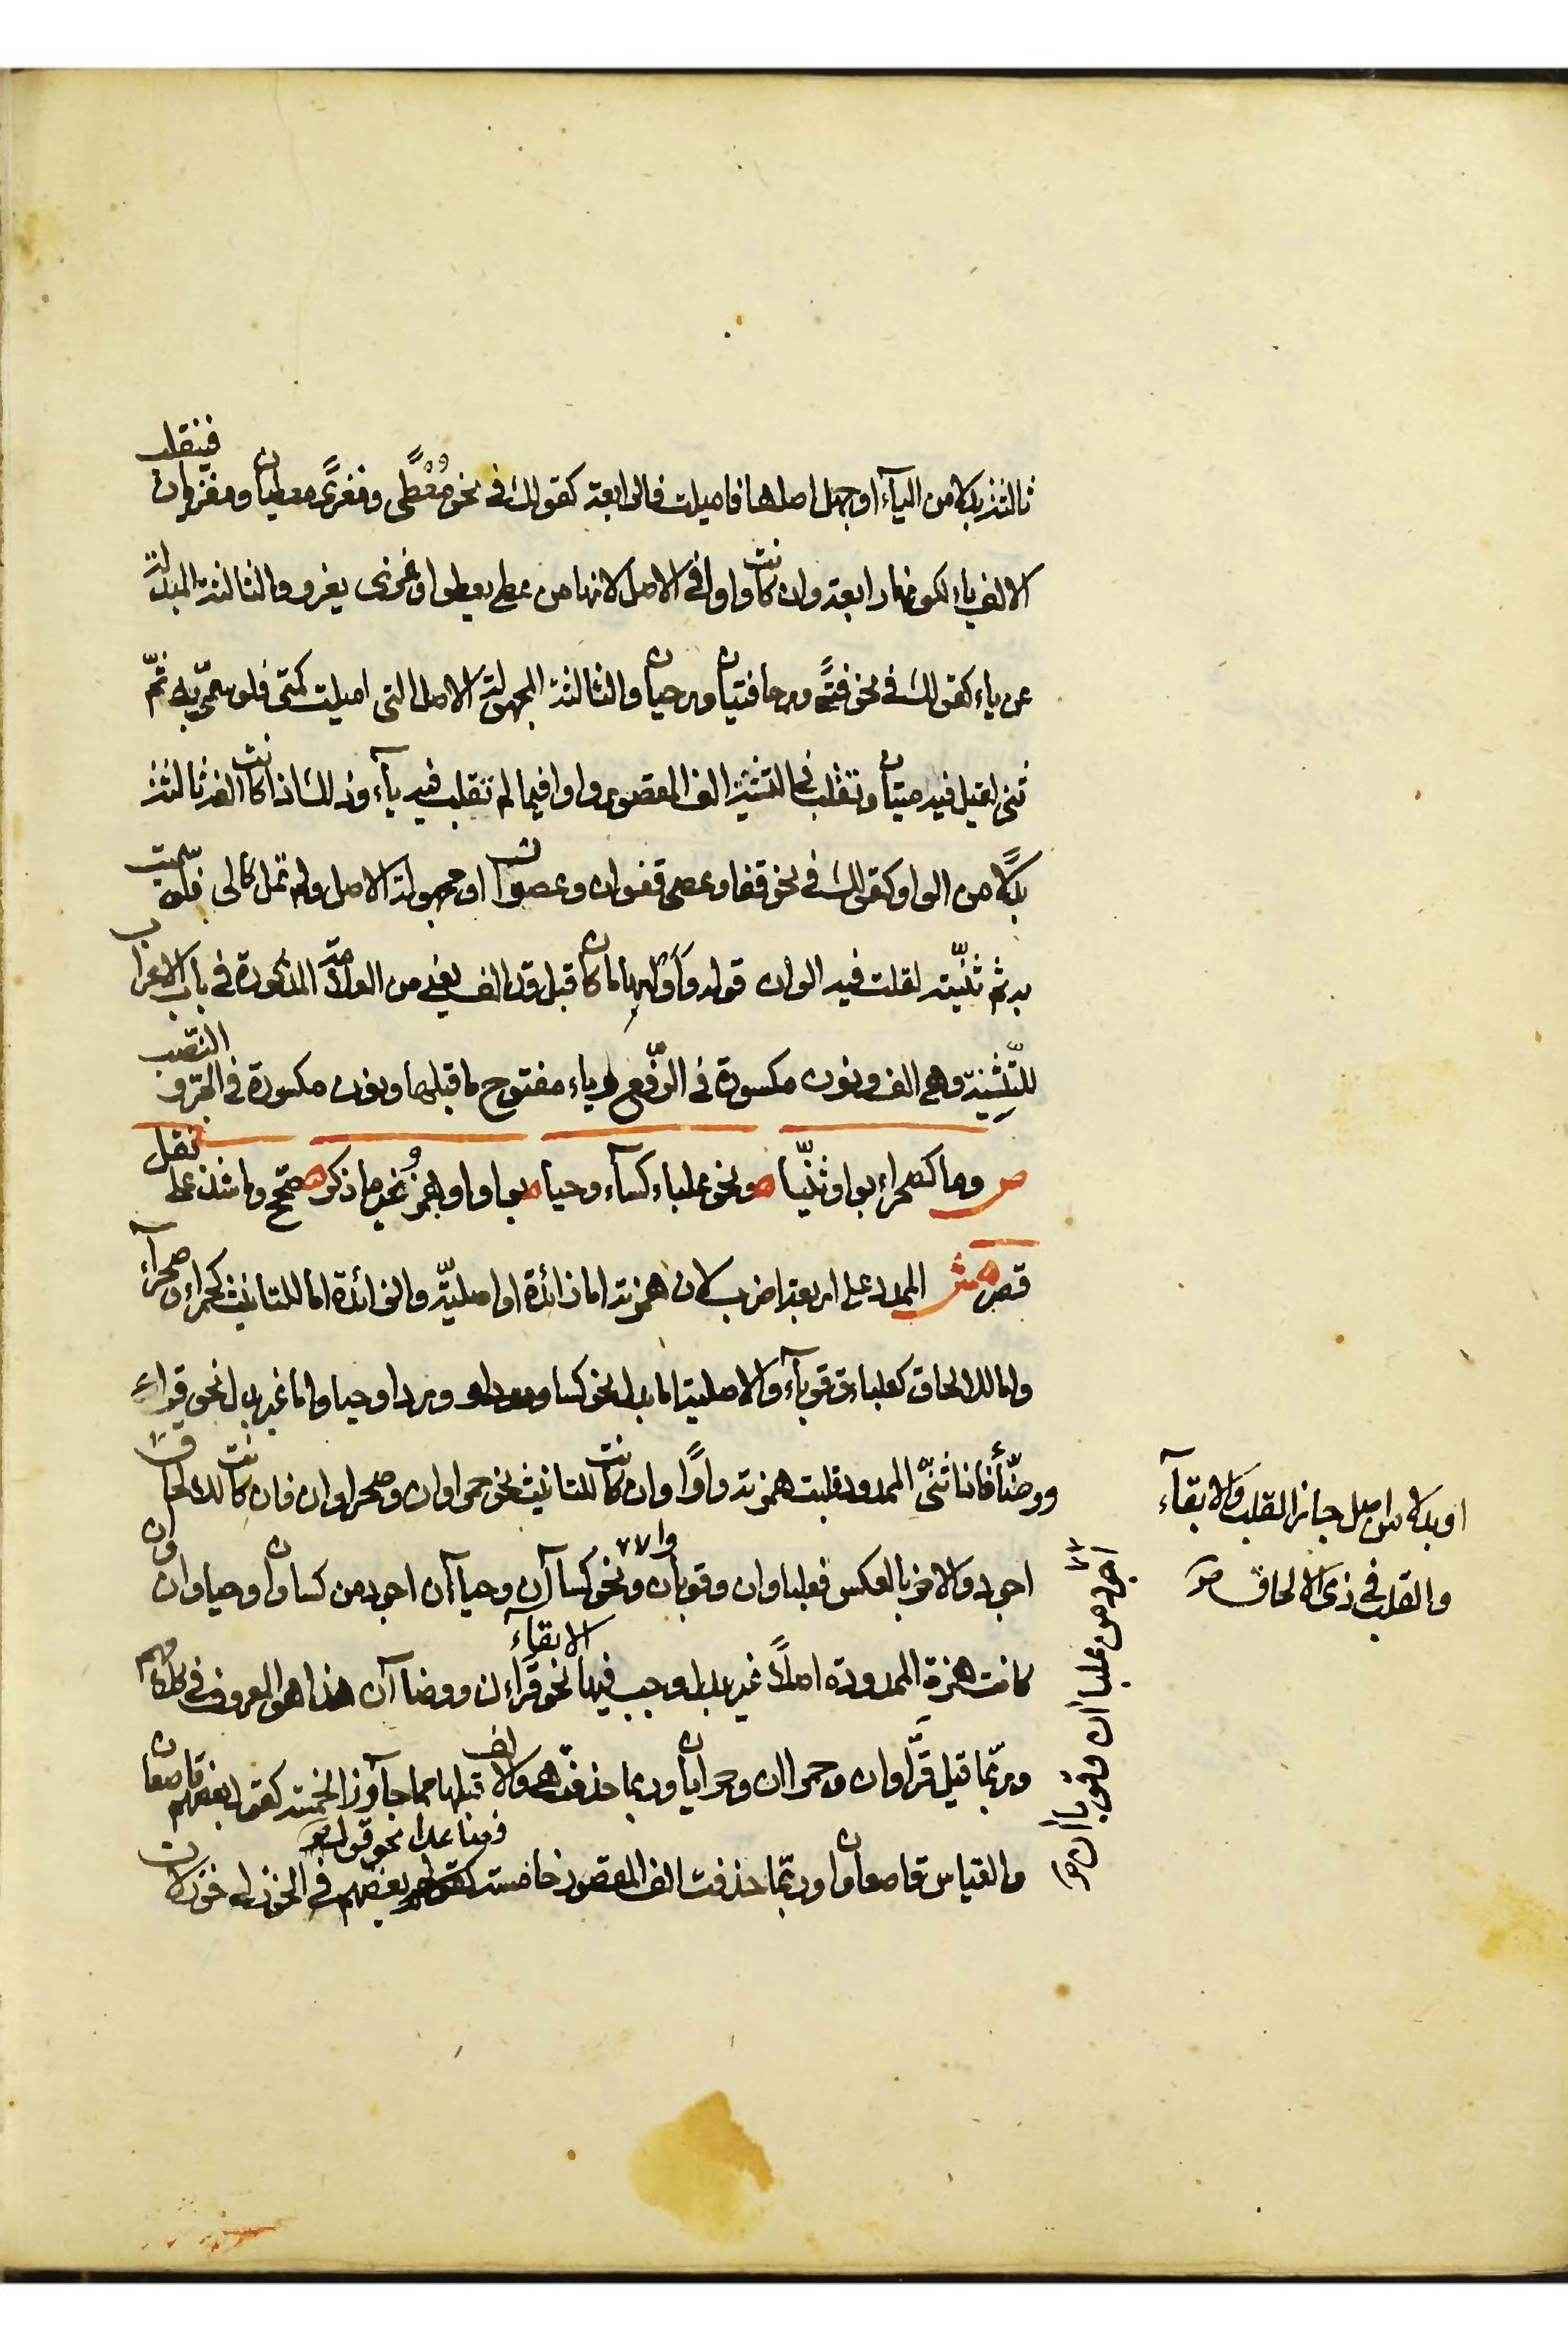 ثالثة بدلا من اليآء او جهل اصلها فاميلت فالرابعة كقولك في نحو مُعْطًى ومغزًى معطيان ومغزيان فينقلب
الالف ياء لكونها رابعة وان كانت واوا في الاصل لانها من عطي يعطوا وغزى يغزو والثالثة المبدلة
عن ياء كقولك في نحو فتًى ورحا فتيان ورحيان والثالثة المجهولة الاصل التي اميلت كمتى فلو سمّي به ثمّ
ثني لقيل فيه متيان وتقلب في التثنية الف المقصور واوا فيما لم تقلب فيه يآء وذلك اذا كانت الفه ثالثة
بدلًا من الواو كقولك في نحو قفا وعصى قفوان وعصوان او مجهولة الاصل ولم تمل كالى فلو سميت
به ثم ثنّيته لقلت فيه الوان قوله وَأَوْلِها ما كان قبل قد الف يعني من العلامة المذكورة في باب الاعراب
للتّثنية وهي الف ونون مكسورة في الرّفع وياء مفتوح ما قبلها ونون مكسورة في الجرّ والنّصب
ص وما كصحراء بواو ثنّيا ونحو علباء كسآء وحيا بواو او همز وغير ما ذكر صحّح وما شذ على نقل
قصر ش الممدود على اربعة اضرب لان همزته اما زائدة او اصليّة والزائدة اما للتانيث كحمراء وصحرآء
واما للالحاق كعلباء وقوبآء والاصلية اما بدل نحو كسا وردا وحيا واما غير بدل نحو قراء
ووضّأ فاذا ثنّي الممدود قلبت همزته واوًا وان كانت للتانيث نحو حمراوان وصحراوان فان كانت للالحاق
اجود والاخر بالعكس فعلباوان وقوباوان ونحو كساآن وحياآن اجود من كساوان وحياوان وان
كانت همزة الممدودة اصلًا غير بدل وجب فيها الابقآء نحو قرّاءان ووضاآن هذا هو المعروف في كلامهم
وربّما قيل قرّاوان وحمراان وحمرايان وربما حذفت هي والالف قبلها مما جآوز الخمسة كقول بعضهم قاصعان
والقياس قاصعاوان وربّما حذفت الف المقصور خامسة فصاعدا نحو قولهم في الخوزلى خوزلان
او بدلا من اصل جاز القلب والابقآء
والقلب في ذي الالحاق صح
اجود من علباان وقوباان صح